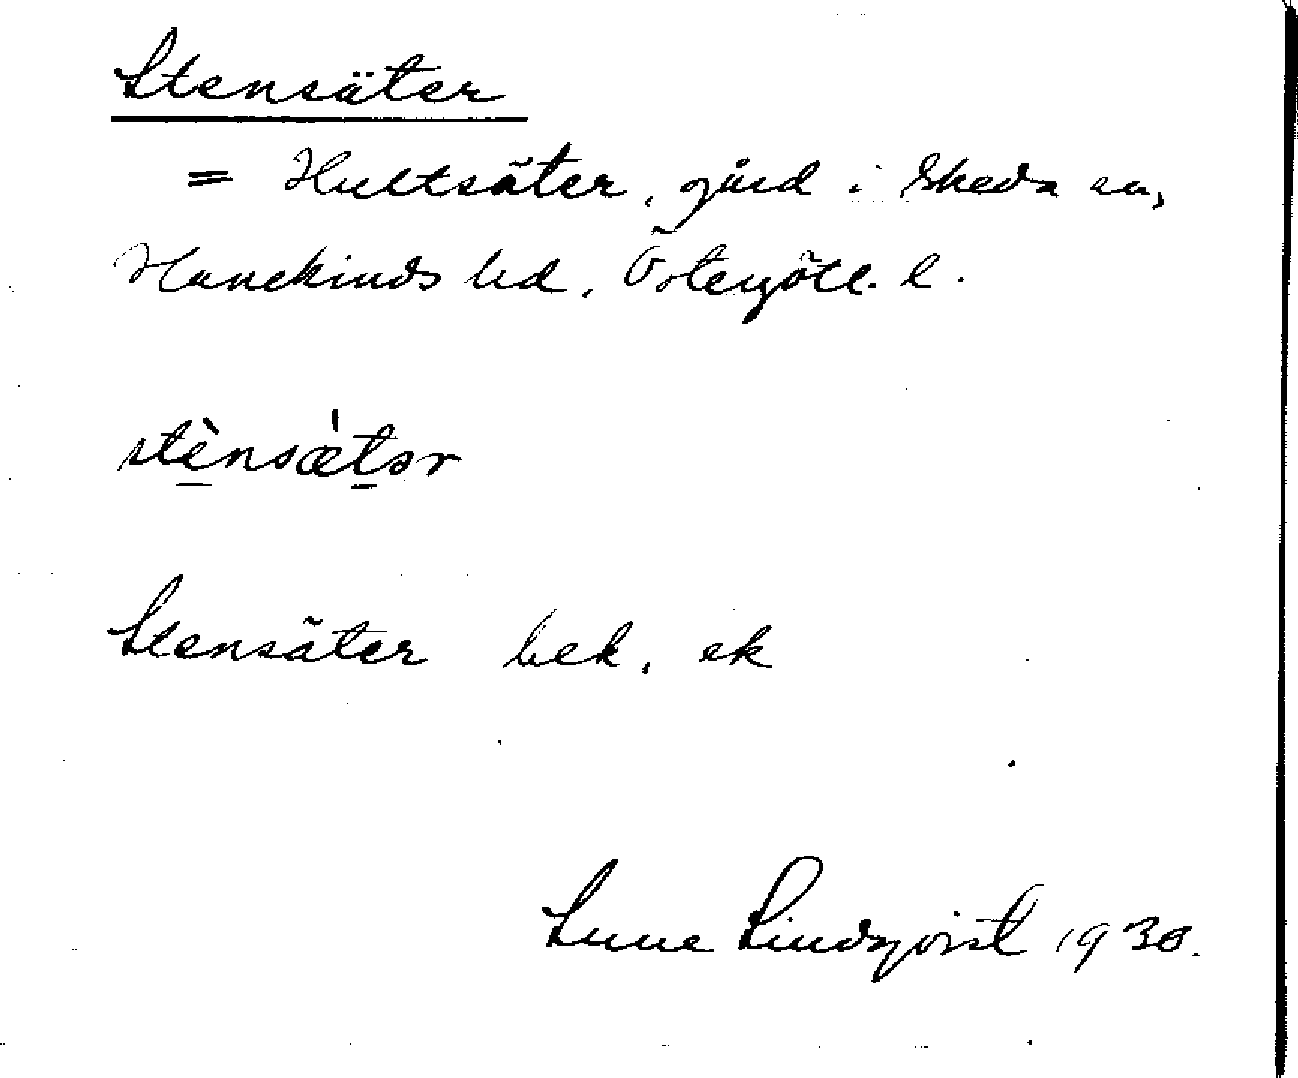 Stensäter
= Hultsäter, gård i Skeda sn,
Hanekinds hd, Östergötl. l.
stènsæ̀tər
Stensäter bek. ek
Sune Lindqvist 1930.